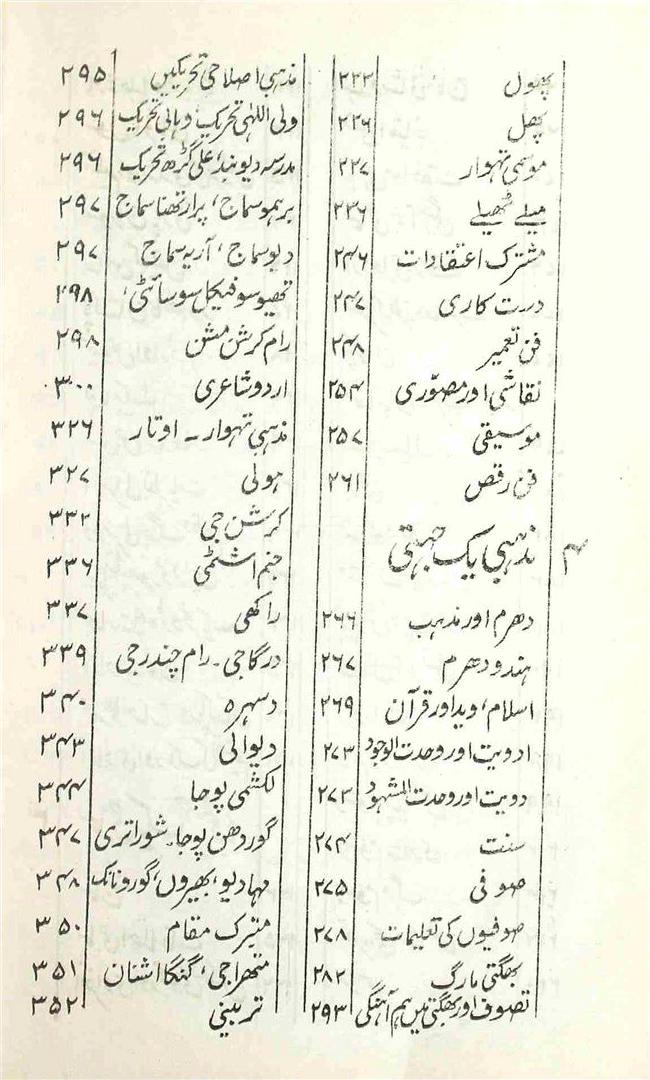 پھول ۲۲۲
پھل ۲۲۶
موسمی تہوار ۲۲۷
میلے ٹھیلے ۲۳۶
مشترک اعتقادات ۲۴۶
دست کاری ۲۴۷
فن تعمیر ۲۴۸
نقاشی اور مصوّری ۲۵۴
موسیقی ۲۵۷
فن رقص ۲۶۱
۴ مذہبی یک جہتی
دھرم اور مذہب ۲۶۶
ہندو دھرم ۲۶۷
اسلام، وید اور قرآن ۲۶۹
ادویت اور وحدت الوجود ۲۷۳
دویت اور وحدت الشہود ۲۷۳
سنت ۲۷۴
صوفی ۲۷۵
صوفیوں کی تعلیمات ۲۷۸
بھگتی مارگ ۲۸۲
تصوف اور بھگتی میں ہم آہنگی ۲۹۳
مذہبی اصلاحی تحریکیں ۲۹۵
ولی اللہٰی تحریک، وہابی تحریک ۲۹۶
مدرسہ دیوبند، علی گڑھ تحریک ۲۹۶
برہمو سماج، پرارتھنا سماج ۲۹۷
دیو سماج، آریہ سماج ۲۹۷
تھیوسوفیکل سوسائٹی، ۲۹۸
رام کرشن مشن ۲۹۸
اردو شاعری ۳۰۰
مذہبی تہوار ۔ اوتار ۳۲۶
ہولی ۳۲۷
کرشن جی ۳۳۲
جنم اشٹمی ۳۳۶
راکھی ۳۳۷
درگا جی ۔ رام چندر جی ۳۳۹
دسہرہ ۳۴۰
دیوالی ۳۴۳
لکشمی پوجا ۳۴۴
گوردھن پوجا۔ شوراتری ۳۴۷
مہادیو، بھیروں، گورونانک ۳۴۸
متبرک مقام ۳۵۰
متھرا جی، گنگا اشنان ۳۵۱
تربینی ۳۵۲